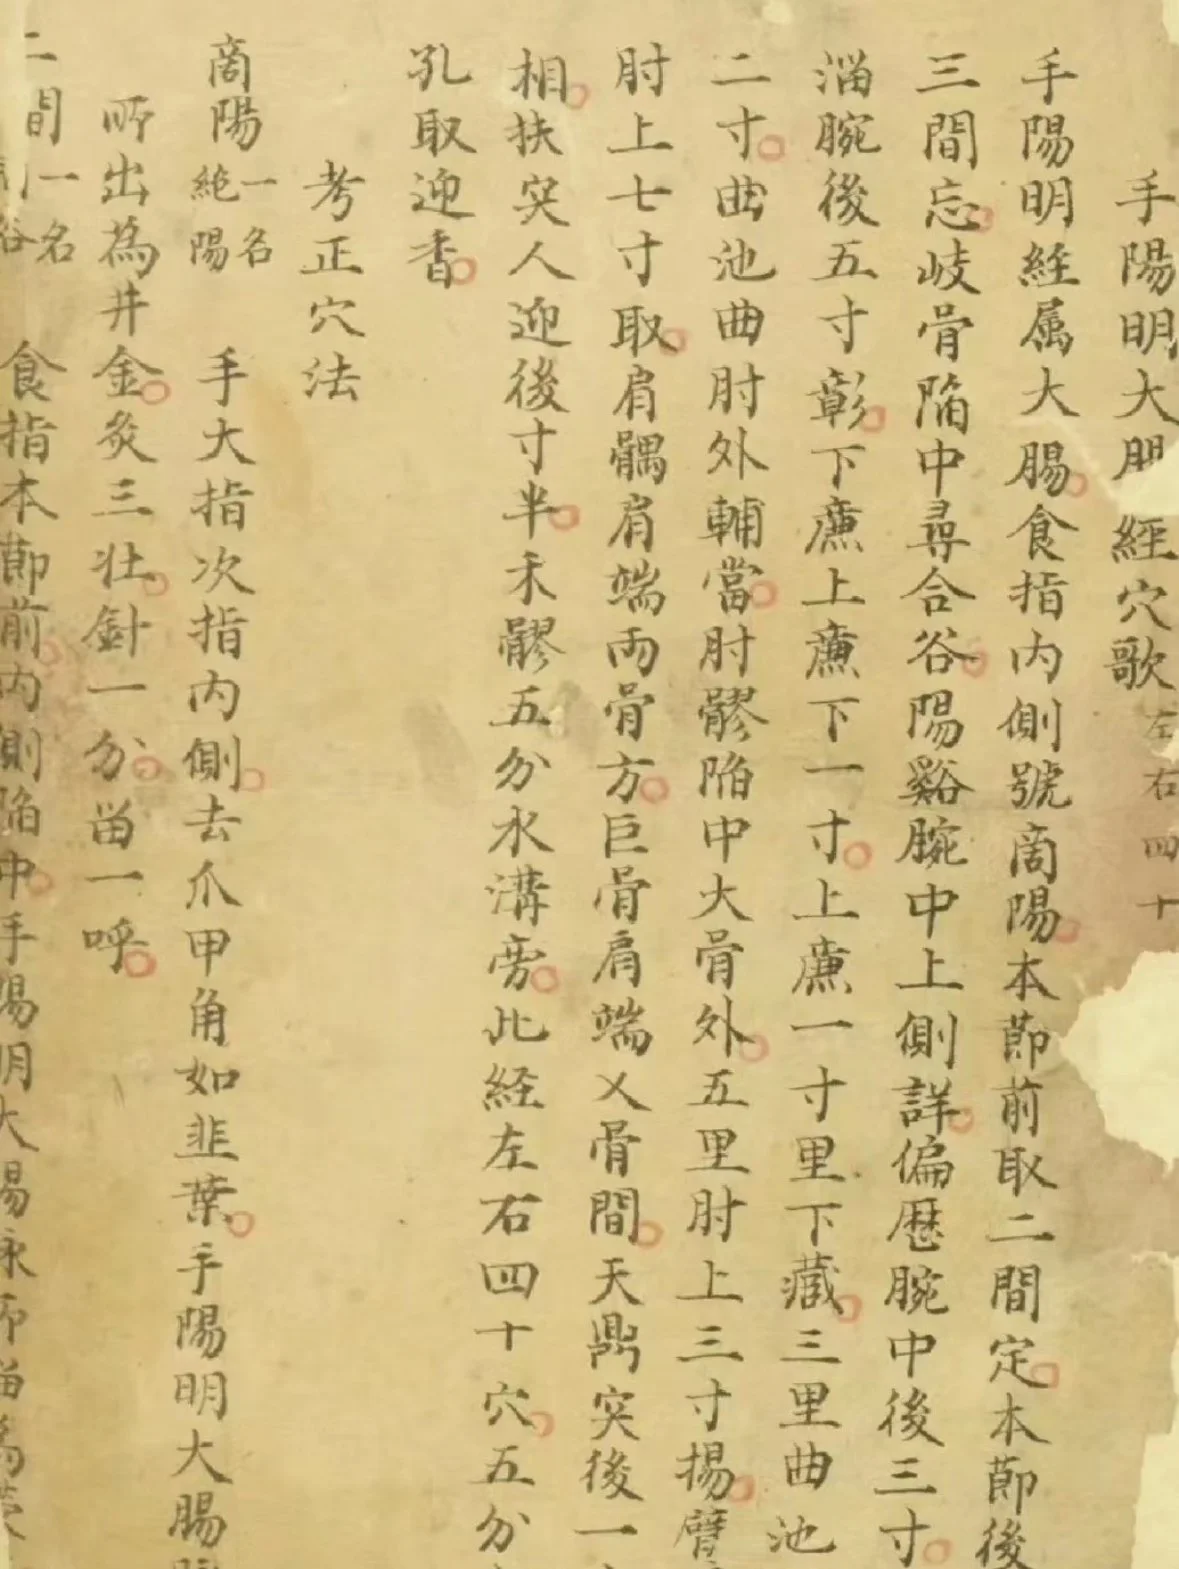 手陽明大腸經穴歌左右四十
手陽明経属大腸食指内側號商陽本節前取二間定本節後
三間忘岐骨陥中尋合谷陽谿腕中上側詳偏歴腕中後三寸
溜腕後五寸彰下廉上廉下一寸上廉一寸里下蔵三里曲池
二寸曲池曲肘外輔當肘髎陥中大骨外五里肘上三寸揚臂
肘上七寸取肩髃肩端両骨方巨骨肩端乂骨間天鼎突後一
相扶突人迎後寸半禾髎五分水溝旁此経左右四十穴五分
孔取迎香
考正穴法
商陽一名絶陽 手大指次指内側去爪甲角如韭葉手陽明大腸脉
所出為井金灸三壮針一分畄一呼
二間一名 食指本節前内側陥中手陽明大腸脉所溜為滎